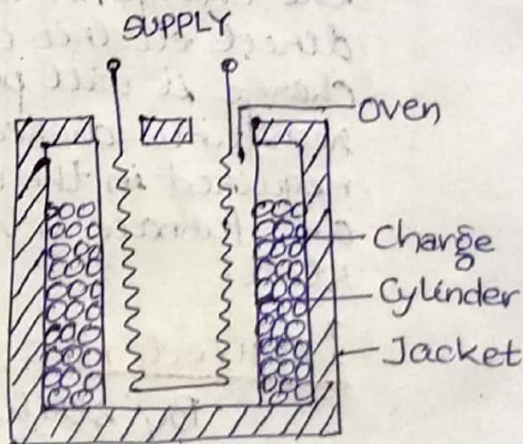 SUPPLY
oven
Charge
Cylinder
Jacket